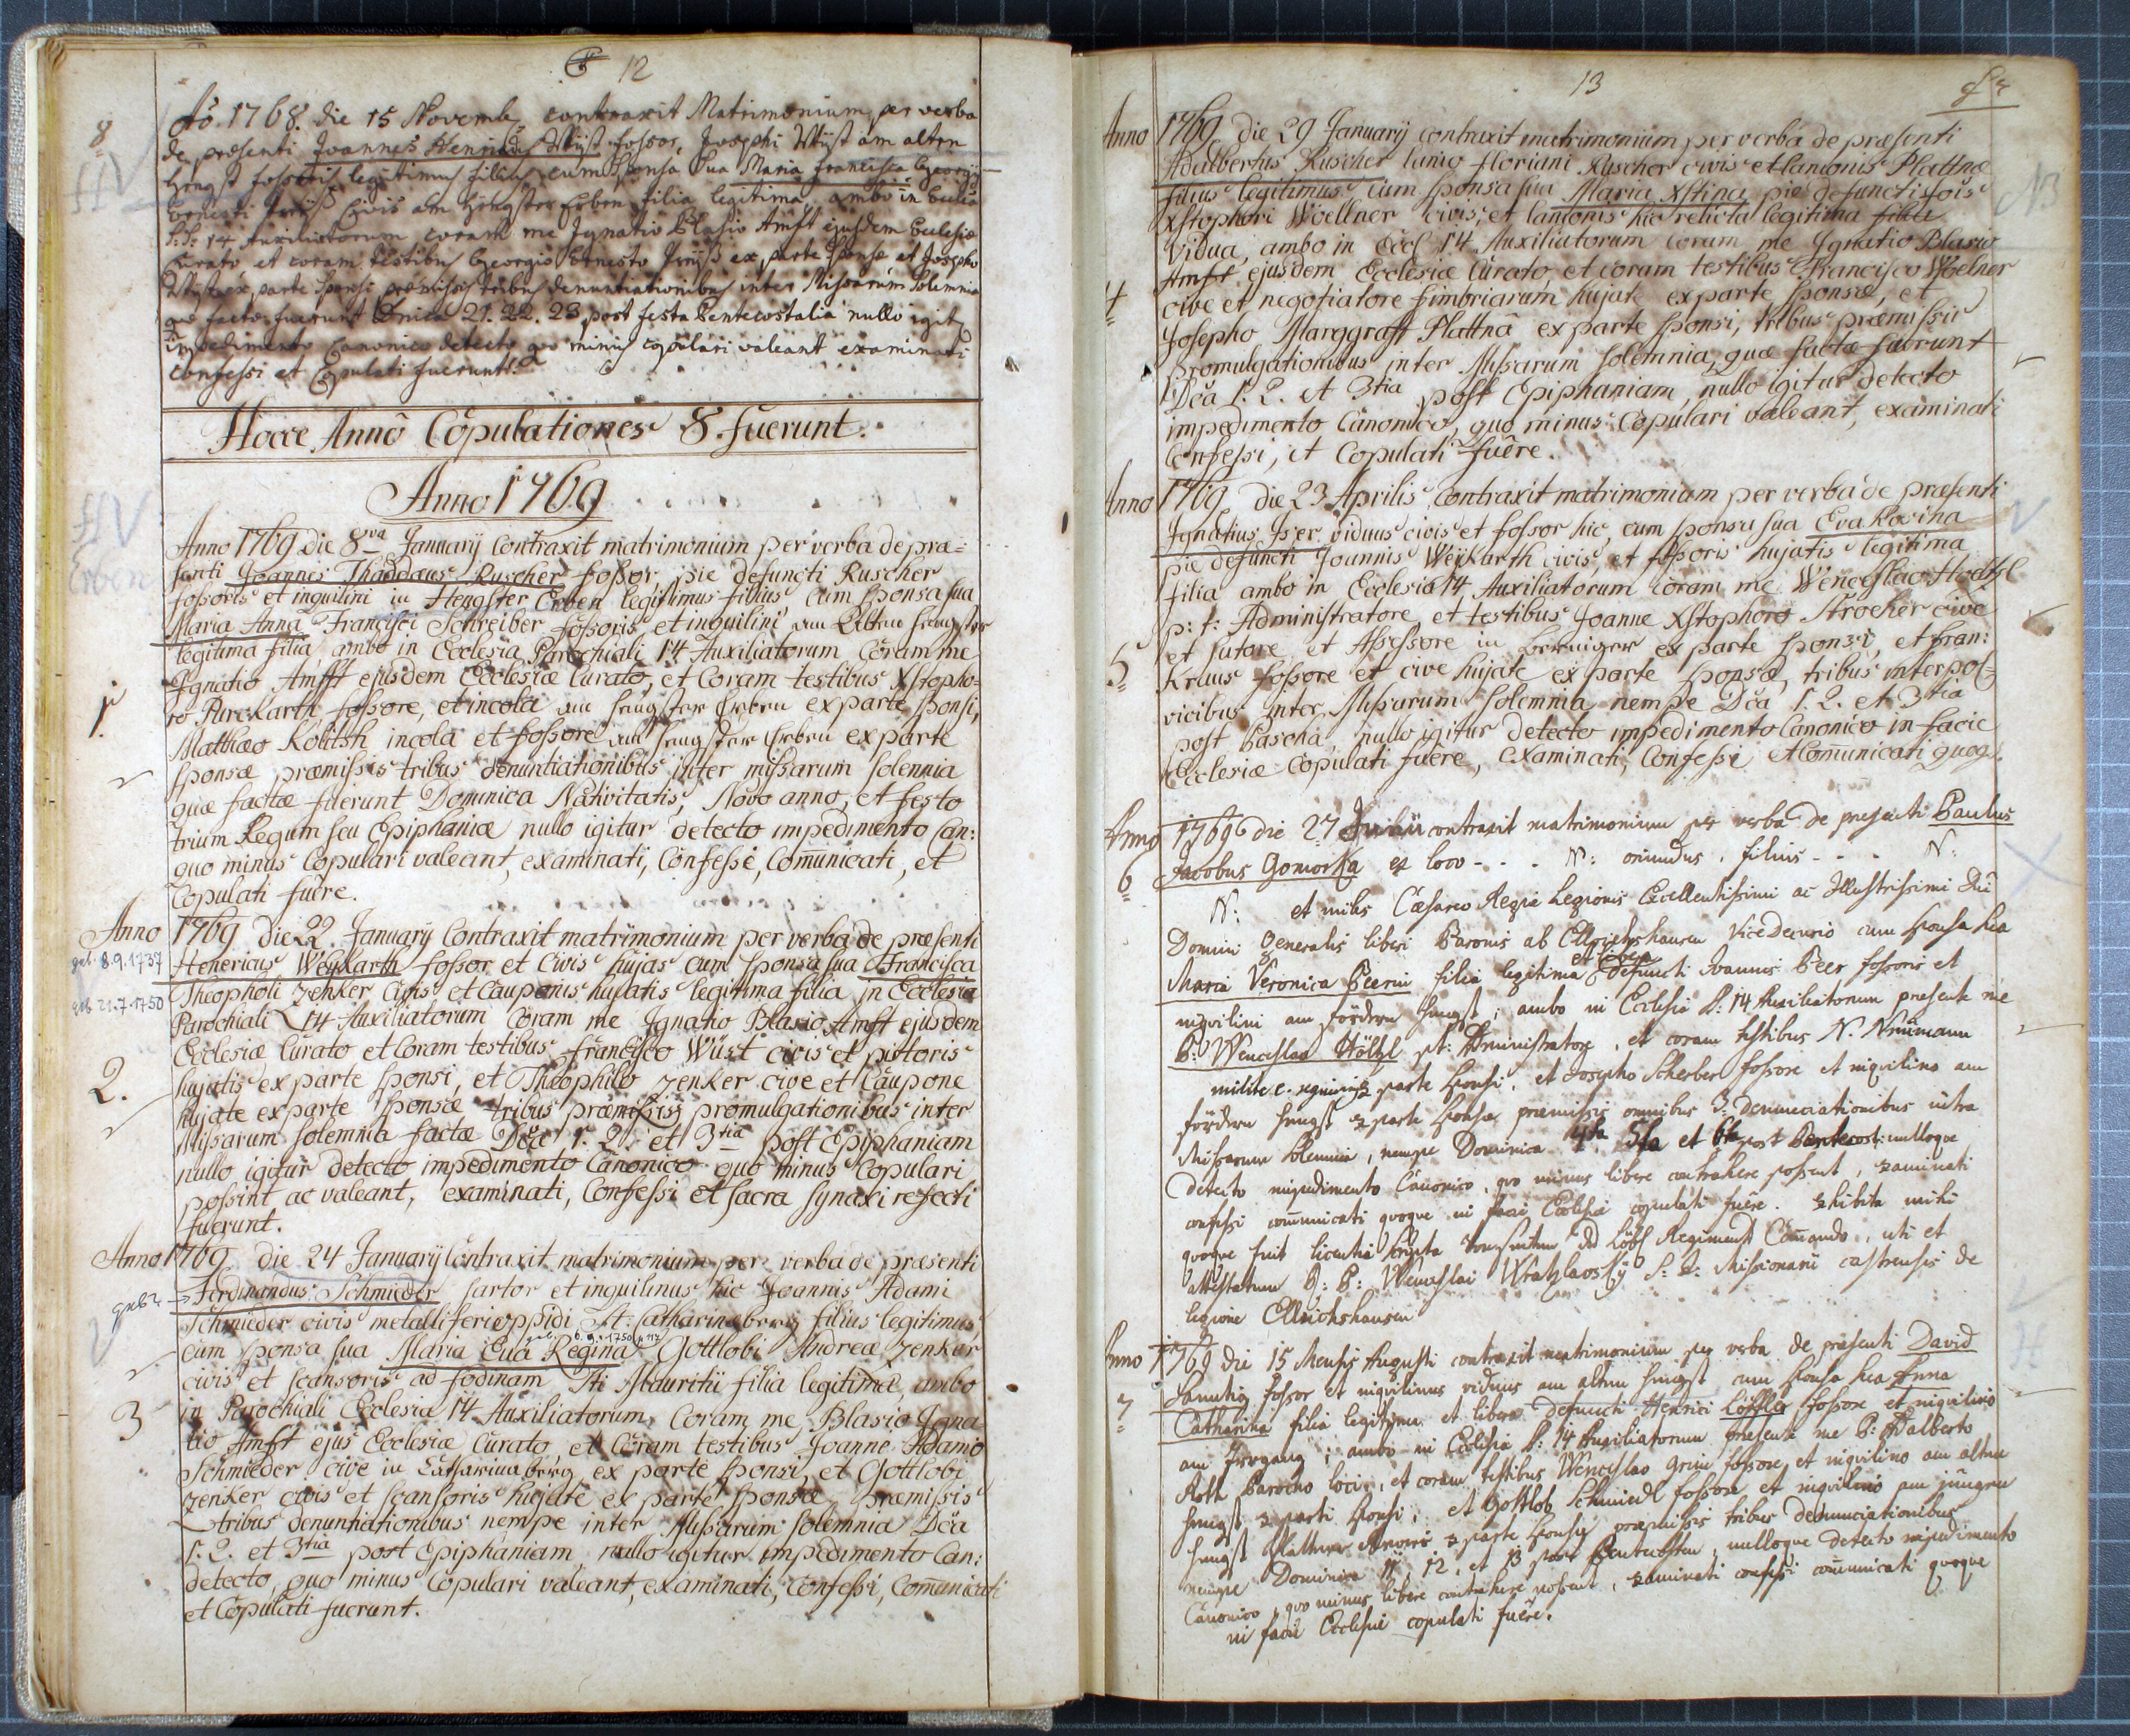 12
8
Aõ. 1768. die 15 Novemb. contraxit Matrimonium per verba
de præsenti Joannes Wüst fossor, Josephi Wüst am alten
Hengst fossoris legitimus filius cum Sponsa sua Maria Francisca Georgij
Ernesti civis am Hengster Erben filia legitima, ambo in Ecclia
S: S: 14 Auxiliatorum coram me Ignatio Blasio Amft ejusdem Ecclesiæ
Curato et coram testibus Georgio Ernesto ex parte sponsæ et Josepho
Wüst ex parte sponsi præmissis tribus denuntiationibus inter Missarum Solemnia
quæ factæ fuerunt Dnica 21. 22. 23 post festa Pentecostalia nullo igitur
impedimento Canonico detecto quo minus copulari valeant examinati
confessi et Copulati fuerunt.
Hocce Annô Copulationes 8. fuerunt.
Anno 1769
Erben
Anno 1769 die 8va Januarij Contraxit matrimonium per verba de præ=
senti Joannes Thaddæus Ruscher fossor, pie defuncti Ruscher
fossoris et inquilini in Hengster Erben legitimus filius cum sponsa sua
Maria Anna Francisci Schreiber fossoris et inquilini am Alten Hengster
legitima filia, ambo in Ecclesia Parochiali 14 Auxiliatorum Coram me
Ignatio Amfft ejusdem Ecclesiæ Curato, et Coram testibus Xstopho=
ro Purckarth fossore, et incola am Hengster Erben ex parte sponsi,
1.
Matthæo Kolitsh incola et fossore am Hengster Erben ex parte
sponsæ præmissis tribus denuntiationibus inter missarum solennia
quæ factæ fuerunt Dominica Nativitatis, Novo anno, et festo
trium Regum seu Epiphaniæ nullo igitur detecto impedimento Can:
quo minus Copulari valeant, examinati, Confessi, Com̄unicati, et
Copulati fuêre.
Anno 1769 die 22. Januarij Contraxit matrimonium per verba de præsenti
geb. 8.9.1737 Henericus Weykarth fossor et Civis hujas cum sponsa sua Francisca
geb 21.7.1750 Theopholi Zenker Civis et Cauponis hujatis legitima filia in Ecclesia
Parochiali 14 Auxiliatorum Coram me Ignatio Blasio Amft ejusdem
Ecclesiæ Curato et Coram testibus Francisco Wüst civis et pistoris
2. hujatis ex parte sponsi, et Theophilo Zenker cive et Caupone
hujate ex parte sponsæ tribus præmissis promulgationibus inter
Missarum solemnia factæ Dc̃a 1. 2. et 3tia post Epiphaniam
nullo igitur detecto impedimento Canonico quo minus Copulari
possint ac valeant, examinati, Confessi et sacra synaxi refecti
fuerunt.
Anno 1769 die 24 Januarij Contraxit matrimonium per verba de præsenti
geb? → Ferdinandus Schmieder sartor et inquilinus hic Joannis Adami
Schmieder civis metalliferi oppidi St: Catharinæberg filius legitimus
geb. 6.9.1750 p 117
cum sponsa sua Maria Eva Regina Gottlobi Andreæ Zenker
civis et scansoris ad fodinam Sti Mauritii filia legitima, ambo
3 in Parochiali Ecclesia 14 Auxiliatorum, Coram me Blasio Igna
tio Amft ejus Ecclesiæ Curato et Coram testibus Joanne Adamo
Schmieder cive in Catharinaberg ex parte sponsi, et Gottlobi
Zenker civis et scansoris hujate ex parte sponsæ præmissis
tribus denuntiationibus nempe inter Missarum solemnia Dc̃a
1. 2. et 3tia post Epiphaniam, nullo igitur impedimento Can:
detecto, quo minus Copulari valeant, examinati, Confessi, Com̄unicati
et Copulati fuerunt.
13
Anno 1769 die 29 Januarij contraxit matrimonium per verba de præsenti
Adalbertus Ruscher lanio Floriani Ruscher civis et lanionis Plattnæ
filius legitimus cum sponsa sua Maria Xstina pie defuncti
NB
Xstophori Woellner civis, et lanionis hic relicta legitima
Vidua, ambo in Eccl 14 Auxiliatorum coram me Ignatio Blasio
Amft ejusdem Ecclesiæ Curato, et coram testibus Francisco Woelner
4 cive et negotiatore fimbriarum hujate ex parte sponsæ, et
Josepho Marggraff Plattnâ ex parte sponsi, tribus præmissis
promulgationibus inter Missarum solemnia, quæ factæ fuerunt
Dc̃a 1. 2. et 3tia post Epiphaniam, nullo igitur detecto
impedimento Canonico, quo minus Copulari valeant, examinati
Confessi, et Copulati fuêre.
Anno 1769 die 23 Aprilis Contraxit matrimonium per verba de præsenti
Ignatius Iser viduus civis et fossor hic, cum sponsa sua Eva Rosina
pie defuncti Joannis Weykarth civis, et fossoris hujatis legitima
filia ambo in Ecclesia 14 Auxiliatorum coram me Wenceslao Hoeltzl
p: t: Administratore, et testibus Joanne Xstophoro Strocher cive
et sutore et Assessore in ex parte sponsi, et Fran:
5 Kraus fossore et cive hujate ex parte sponsæ, tribus interpol=
vicibus inter Missarum solemnia nempe Dc̃a 1. 2. et 3tia
post Pascha, nullo igitur detecto impedimento Canonico in facie
Ecclesiæ Copulati fuêre, examinati, Confessi et Com̄unicati quoq.
Anno 1769 die 27 Junii contraxit matrimonium per verba de præsenti Paulus
6 Jacobus Gomorka ex loco - - - N: oriundus, filius - - - N:
N: et miles Cæsareo Regiæ Legionis Excellentissimi ac Illustrissimi Dñi
Domini Generalis liberi Baronis ab Ellrichshausen Vice Decurio cum sponsa sua
et libera
Maria Veronica Peerin filia legitima defuncti Joannis Peer fossoris et
inquilini am fördern Hengst; ambo in Ecclesia S: 14 Auxiliatorum præsente me
P: Wenceslao Höltzl pt: Administratore, et coram testibus N. Neümann
milite ex parte sponsi, et Josepho Scherber fossore et inquilino am
fördern Hengst ex parte sponsæ præmissis omnibus 3: denunciationibus intra
Missarum solemnia, nempe Dominica 4ta 5ta et 6ta post Pentecost: nulloque
detecto impedimento Canonico, quo minus libere contrahere possent, examinati
confessi com̄unicati quoque in facie Ecclesiæ copulati fuêre. Exhibita mihi
quoque fuit licentia scripta Löbl Regiment Com̄ando, uti et
attestatum P: Wenceslai Wratzlavsky S: J: Missionarii castrensis de
legione Ellrichshausen
Anno 1769 die 15 Mensis Augusti contraxit matrimonium per verba de præsenti David
7 fossor et inquilinus viduus am alten Hengst cum sponsa sua Anna
Catharina filia legitima et libera defuncti Henrici Löffler fossore et inquilino
am Irrgang; ambo in Ecclesia S: 14 Auxiliatorum præsente me P: Adalberto
Roth Parocho loci, et coram testibus Wenceslao Grim fossore et inquilino am alten
Hengst ex parte sponsi, et Gottlob Schmiedl fossore et inquilino am jüngern
Hengst ex parte sponsæ præmissis tribus denunciationibus
nempe Dominica 11, 12, et 13 post Pentecosten, nulloque detecto impedimento
Canonico, quo minus libere contrahere possent, examinati confessi com̄unicati quoque
in facie Ecclesiæ copulati fuêre.